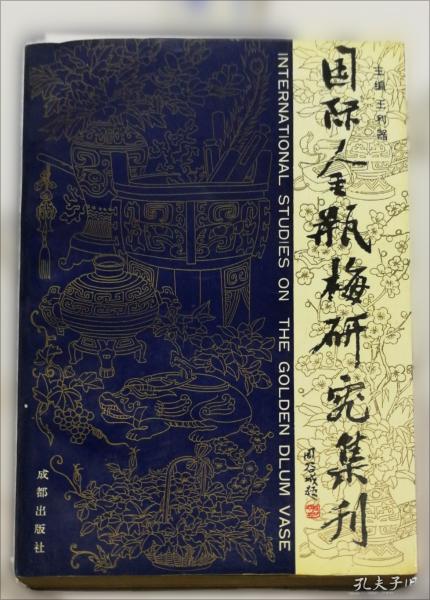 主编 王利器
国际金瓶梅研究集刊
周谷城题
INTERNATIONAL STUDIES ON THE GOLDEN DLUM VASE
成都出版社
孔夫子旧